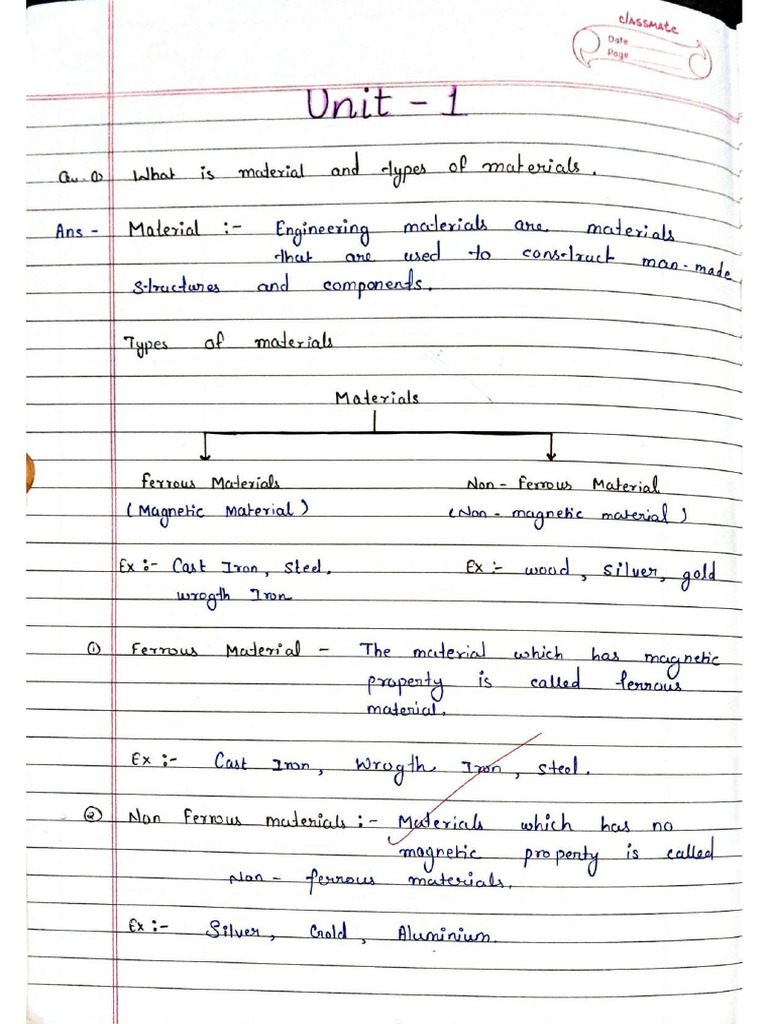 classmate
Date
Page
Unit - 1
Qu. ① What is material and types of materials.
Ans - Material :- Engineering materials are materials
that are used to construct man-made
structures and components.
Types of materials
Materials
Ferrous Materials Non - Ferrous Material
(Magnetic Material) (Non - magnetic material)
Ex :- Cast Iron, Steel. Ex :- wood, silver, gold
wrogth Iron
① Ferrous Material - The material which has magnetic
property is called ferrous
material.
Ex :- Cast Iron, Wrogth Iron, steel.
② Non Ferrous materials :- Materials which has no
magnetic property is called
Non - ferrous materials.
Ex :- Silver, Gold, Aluminium.